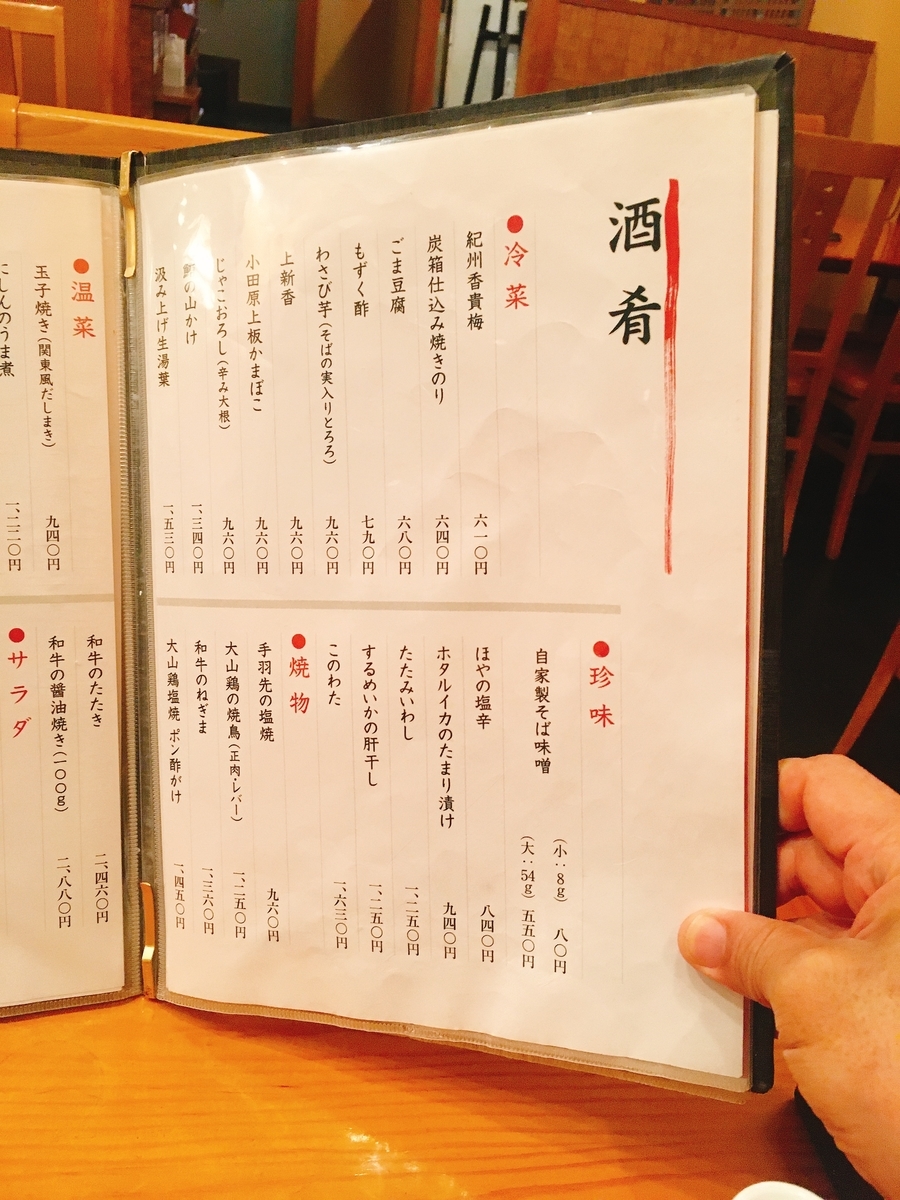 酒肴
●冷菜
紀州香貴梅 六一〇円
炭箱仕込み焼きのり 六四〇円
ごま豆腐 六八〇円
もずく酢 七九〇円
わさび芋(そばの実入りとろろ) 九六〇円
上新香 九六〇円
小田原上板かまぼこ 九六〇円
じゃこおろし(辛み大根) 九六〇円
の山かけ 一、三四〇円
汲み上げ生湯葉 一、五三〇円
●珍味
自家製そば味噌 (小:8g) 八〇円
(大:54g) 五五〇円
ほやの塩辛 八四〇円
ホタルイカのたまり漬け 九四〇円
たたみいわし 一、二五〇円
するめいかの肝干し 一、二五〇円
このわた 一、六三〇円
●焼物
手羽先の塩焼 九六〇円
大山鶏の焼鳥(正肉・レバー) 一、二五〇円
和牛のねぎま 一、三六〇円
大山鶏塩焼 ポン酢がけ 一、四五〇円
●温菜
玉子焼き(関東風だしまき) 九四〇円
にしんのうま煮 一、二二〇円
和牛のたたき 二、四六〇円
和牛の醤油焼き(一〇〇g) 二、八八〇円
●サラダ